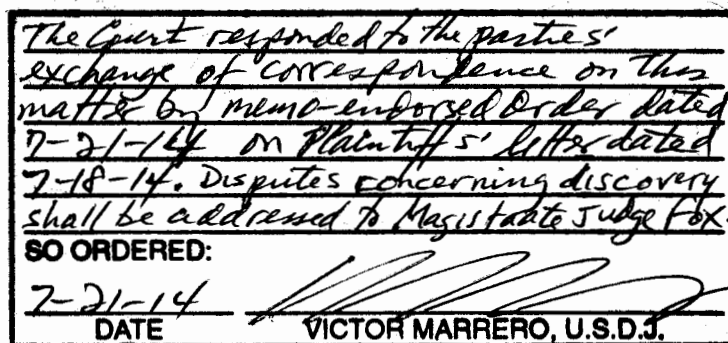 The Court responded to the parties'
exchange of correspondence on this
matter by memo-endorsed Order dated
7-21-14 on Plaintiffs' letter dated
7-18-14. Disputes concerning discovery
shall be addressed to Magistrate Judge Fox.
SO ORDERED:
7-21-14
DATE VICTOR MARRERO, U.S.D.J.